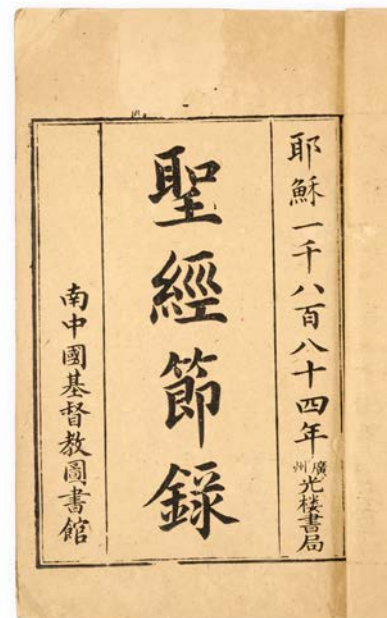 耶穌一千八百八十四年廣州光楼書局
聖經節錄
南中國基督教圖書館